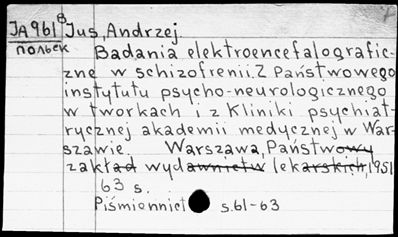 JA961⁸ Jus, Andrzej
польск
Badania elektroencefalografic-
zne w schizofrenii. Z Państwowego
instytutu psycho-neurologicznego
w Tworkach i z Kliniki psychiat-
rycznej akademii medycznej w War-
szawie. Warszawa, Państwowy
zakład wydawnictw lekarskich, 1951
63 s.
Piśmiennict s.61-63